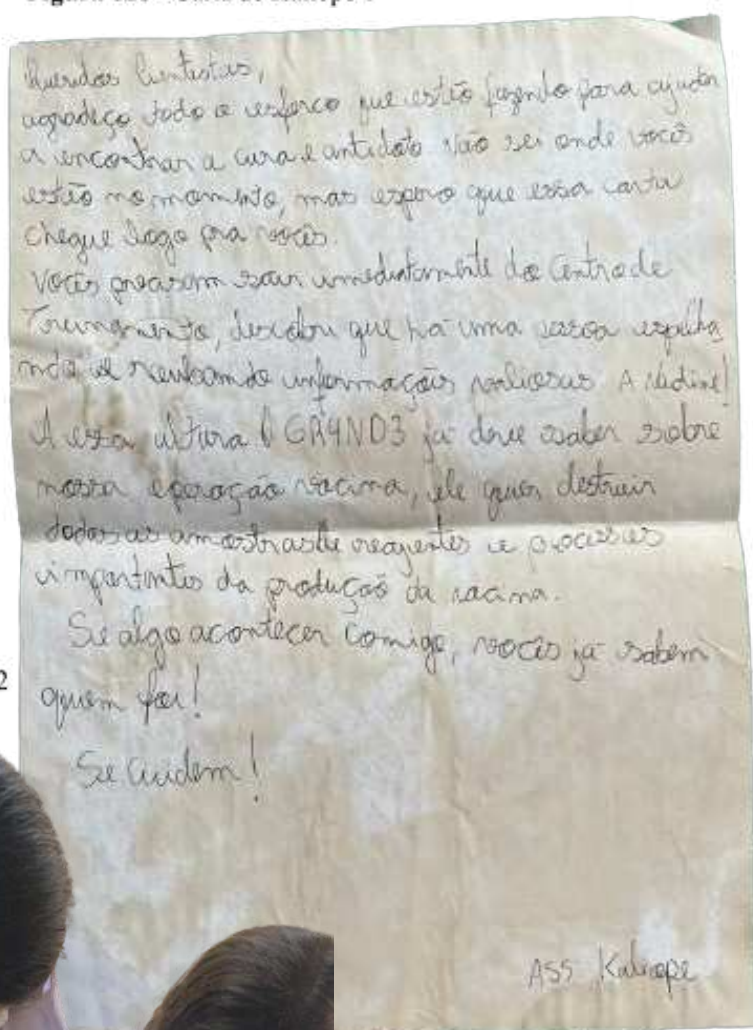 Queridos Cientistas,
agradeço todo o esforço que estão fazendo para ajudar
a encontrar a cura e antidoto não sei onde vocês
estão no momento, mas espero que essa carta
chegue logo pra vocês.
Vocês precisam sair imediatamente do Centro de
Treinamento, descobri que há uma pessoa espilha
ndo e roubando informações valiosas. A Nadine!
A essa altura O GR4ND3 já deve saber sobre
nossa operação vacina, ele quer destruir
todas as amostras de reagentes e processos
importantes da produção da vacina.
Se algo acontecer comigo, vocês já sabem
quem foi!
Se cuidem!
2
ASS Kaliope